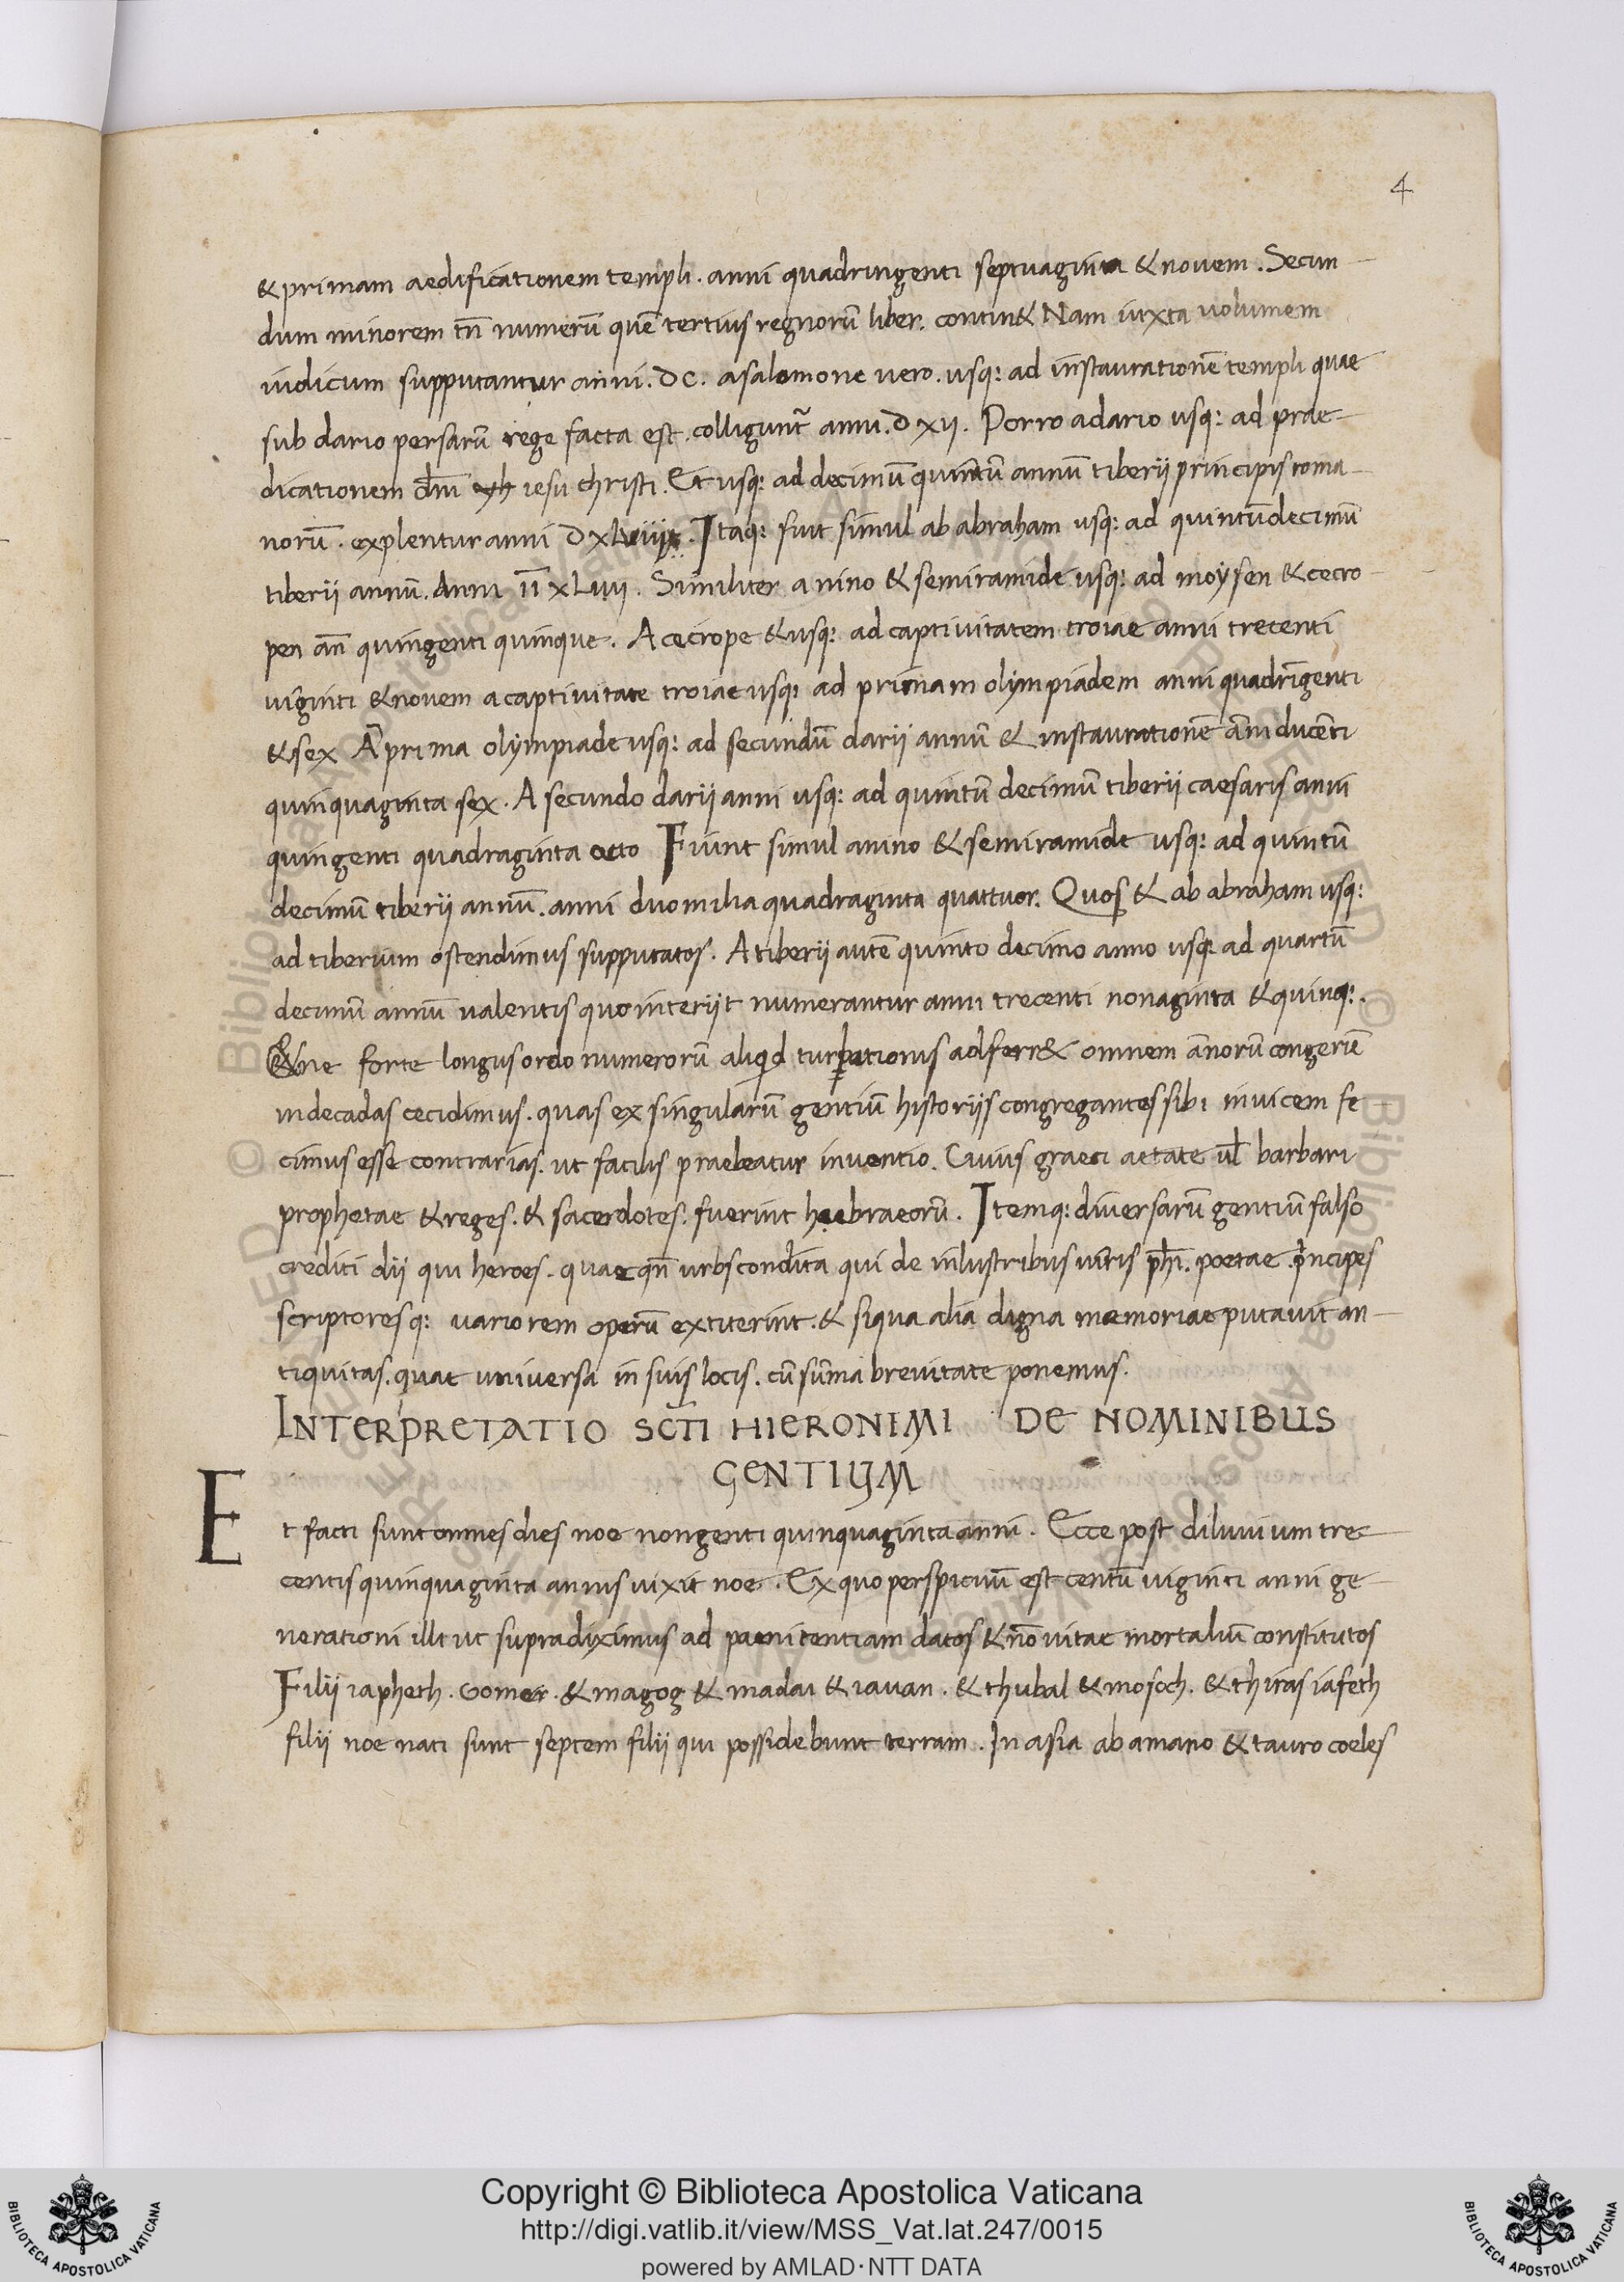 4
& primam aedificationem templi . anni quadringenti septuaginta & novem . Secun-
dum minorem tn̄ numerū quē tertius regnorū liber . contin& Nam iuxta volumem
iudicum supputantur anni . DC . a salomone vero . usq: ad instaurationē templi quae
sub dario persarū rege facta est . colligunt᷑ anni . D XII . Porro a dario usq: ad prae-
dicationem dn̄i iesu christi . Et usq: ad decimū quintū annū tiberii principis roma-
norū . explentur anni D XLviii . Itaq: fiut simul ab abraham usq: ad quintūdecimū
tiberii annū . Anni īī xLiiii . Similiter a nino & semiramide usq: ad moysen & cecro-
pen an̄ quingenti quinque . A cecrope & usq: ad captivitatem troiae anni trecenti
viginti & novem a captivitate troiae usq: ad primam olympiadem anni quadrīgenti
& sex A prima olympiade usq: ad secundū darii annū & instaurationē āni ducēti
quinquaginta sex . A secundo darii anni usq: ad quintū decimū tiberii caesaris anni
quingenti quadraginta octo Fiunt simul a nino & semiramide usq: ad quintū
decimū tiberii annū . anni duo milia quadraginta quattuor . Quos & ab abraham usq:
ad tiberium ostendimus supputatos . A tiberii autē quinto decimo anno usq: ad quartū
decimū annū valentis quo interiit numerantur anni trecenti nonaginta & quinq: .
& ne forte longus ordo numerorū aliqd turbationis adferr& omnem ānorū congeriē
in decadas cecidimus . quas ex singularū gentiū historiis congregantes sibi invicem fe
cimus esse contrarias . ut facilis praebeatur inventio . Cuius graeci aetate ul̄ barbari
prophetae & reges . & sacerdotes . fuerint haebraeorū . Itemq: diversarū gentiū falso
crediti dii qui heroes . quae qn̄ urbs condita qui de inlustribus viris ph̄i . poetae . pncipes
scriptoresq: variorem operū extiterint . & siqua alia digna memoriae putavit an-
tiquitas . quae universa in suis locis . cū sūma brevitate ponemus .
INTERPRETATIO SCT̄I HIERONIMI DE NOMINIBUS
GENTIUM
Et facti sunt omnes dies noe nongenti quinquaginta anni . Ecce post diluvium tre-
centis quinquaginta annis vixit noe . Ex quo perspicuū est centū viginti anni ge-
nerationi illi ut supra diximus ad paenitentiam datos & nō vitae mortaliū constitutos
Filii iapheth . Gomer . & magog & madai & iavan . & thubal & mosoch . & thiras iafeth
filii noe nati sunt septem filii qui possidebunt terram . In asia ab amano & tauro coeles
Copyright © Biblioteca Apostolica Vaticana
http://digi.vatlib.it/view/MSS_Vat.lat.247/0015
powered by AMLAD·NTT DATA
BIBLIOTECA APOSTOLICA VATICANA
BIBLIOTECA APOSTOLICA VATICANA